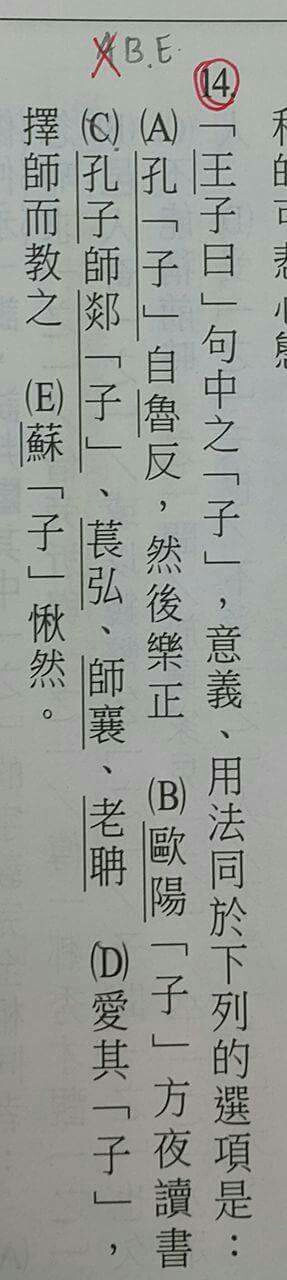 ABE
14.「王子曰」句中之「子」，意義、用法同於下列的選項是：
(A)孔「子」自魯反，然後樂正　(B)歐陽「子」方夜讀書
(C)孔子師郯「子」、萇弘、師襄、老聃　(D)愛其「子」，
擇師而教之　(E)蘇「子」愀然。